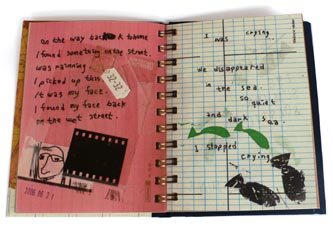 on the way back to home
I found something on the street.
was raining
I picked up this
it was my face.
I found my face back
on the wet street.
32-32
2006.06.21
I was crying.
we disappeared
in the sea.
so quiet
and dark sea.
I stopped
crying.